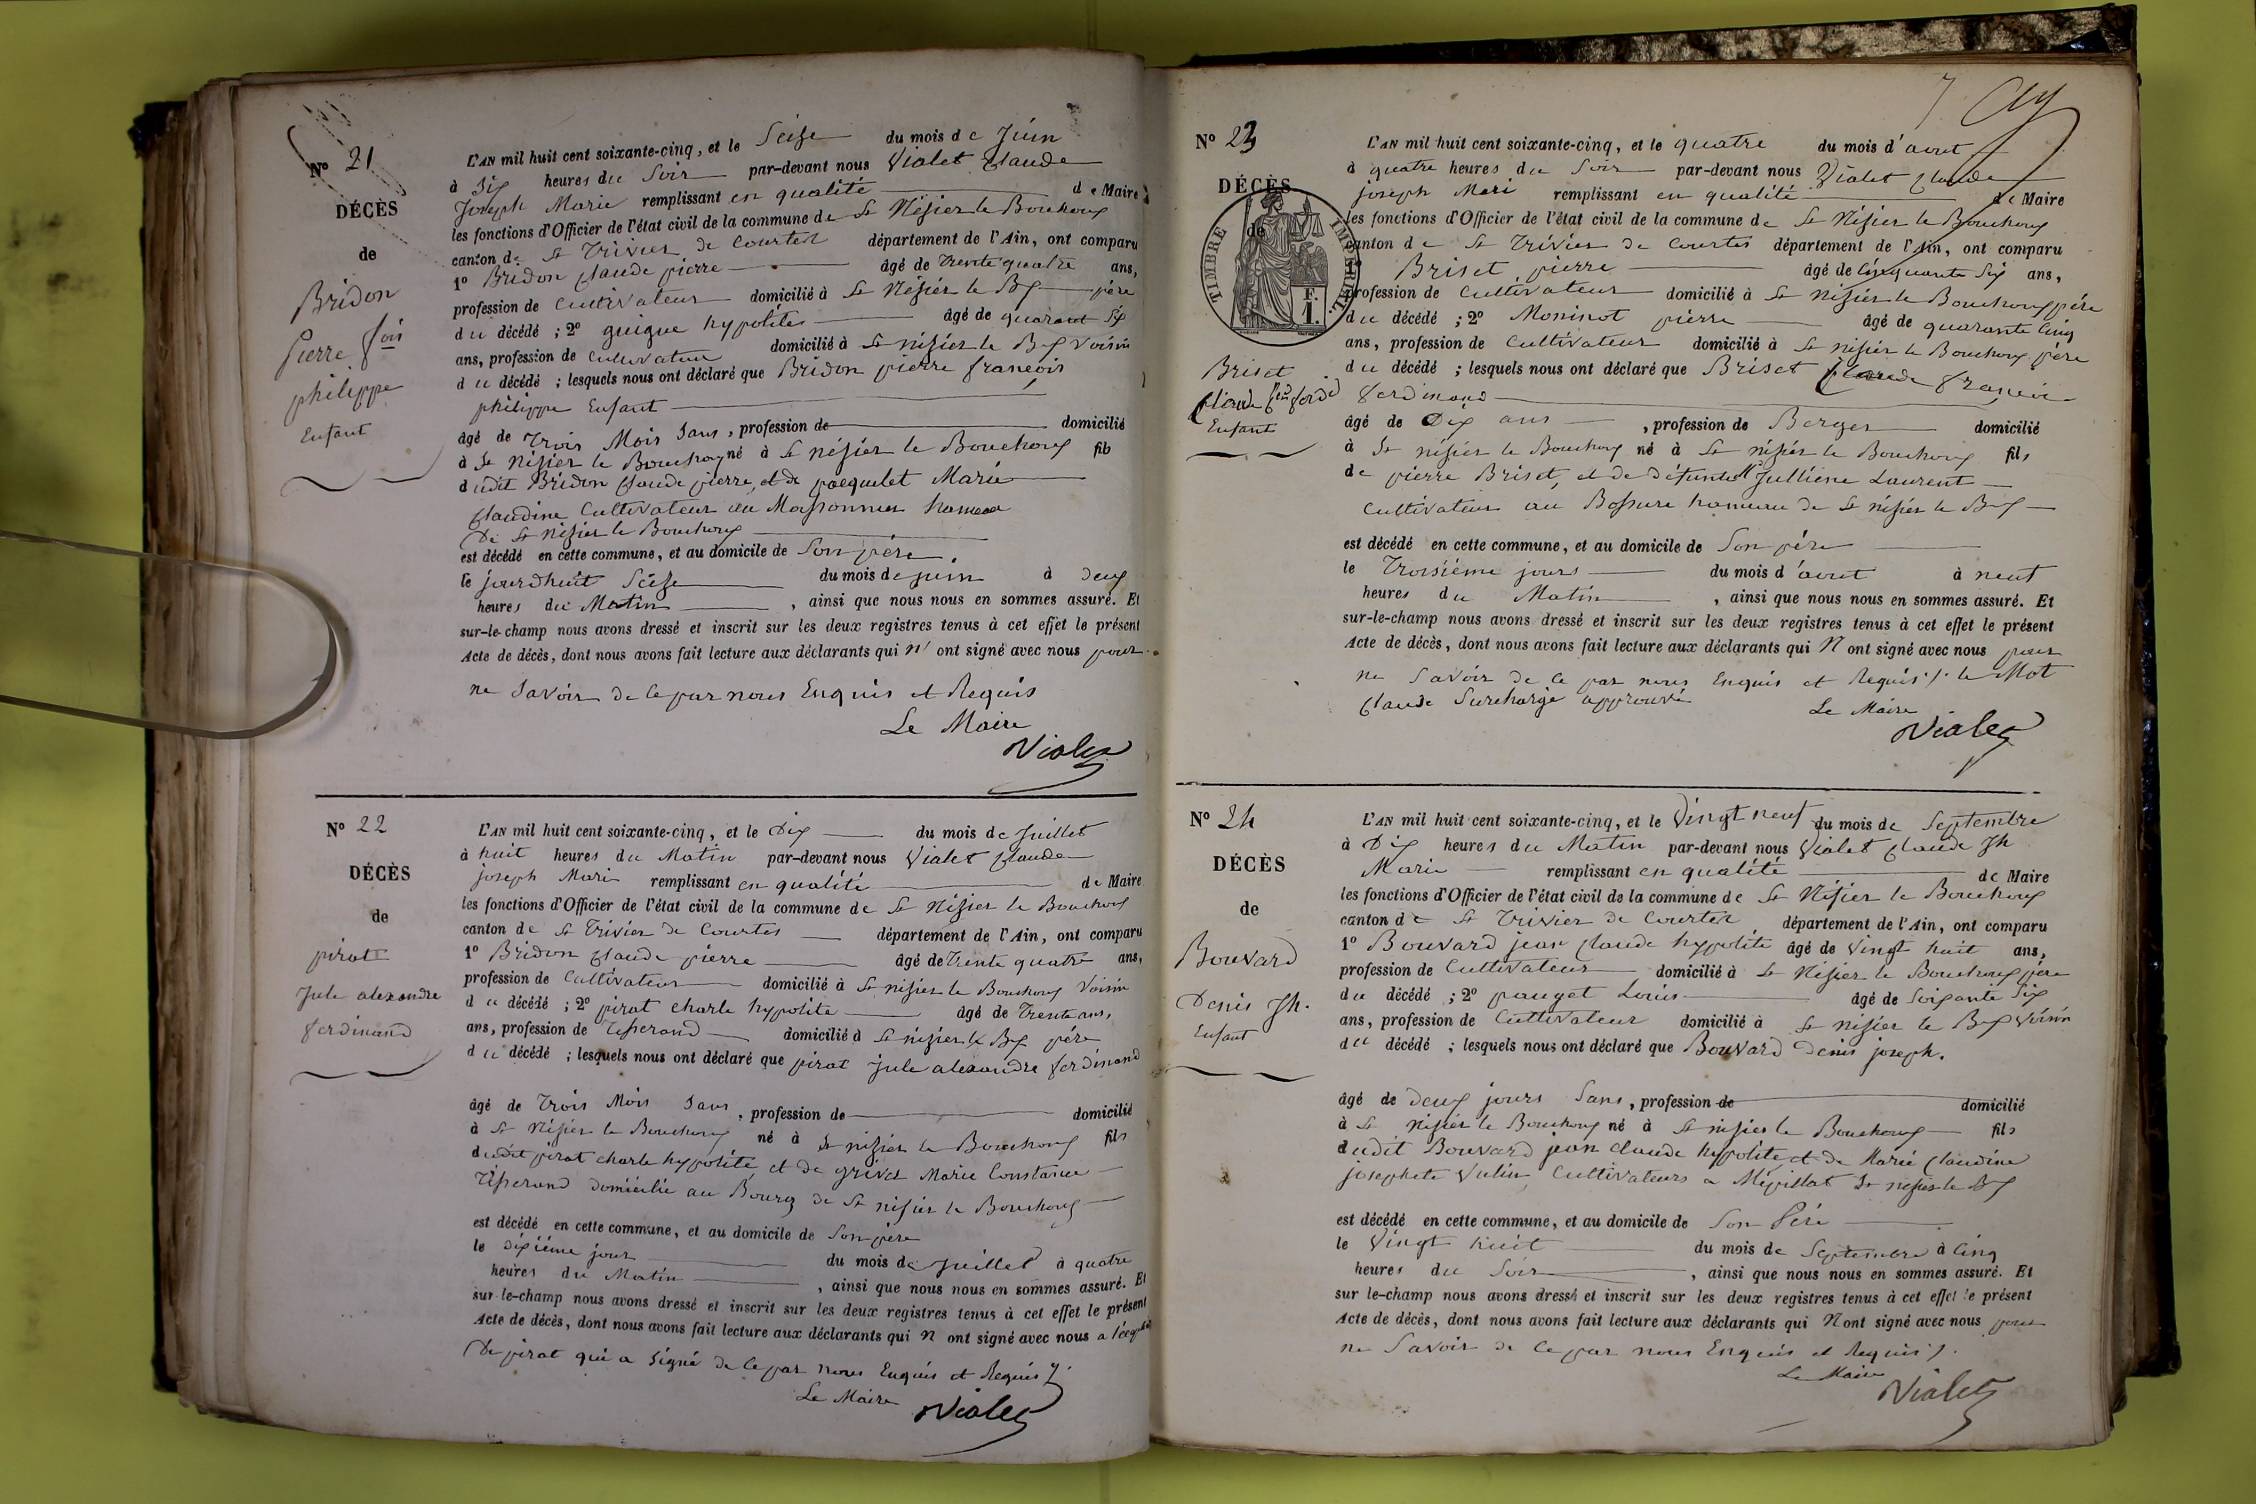 Nº 21
DÉCÈS
de
Bridon
Pierre fois
philippe
Enfant
L'AN mil huit cent soixante-cinq, et le Seize du mois de Juin
à Six heures du Soir par-devant nous Vialet Claude
Joseph Marie remplissant en qualité de Maire
les fonctions d'Officier de l'état civil de la commune de St Nisier le Bouchoux
canton de St Trivier de Courtes département de l'Ain, ont comparu
1º Bridon Claude pierre âgé de Trente quatre ans,
profession de Cultivateur domicilié à St Nisier le Bx père
du décédé ; 2º guigue hypolite âgé de quarant Six
ans, profession de Cultivateur domicilié à St nisier le Bx Voisin
du décédé ; lesquels nous ont déclaré que Bridon pierre françois
philippe Enfant
âgé de Trois Mois Sans, profession de domicilié
à St Nisier le Bouchoux né à St nisier le Bouchoux fils
dudit Bridon Claude pierre, et de pacquelet Marie
Claudine Cultivateur au Massonnes hameau
De St Nisier le Bouchoux
est décédé en cette commune, et au domicile de Son père.
le jourdhuit Seize du mois de juin à deux
heures du Matin, ainsi que nous nous en sommes assuré. Et
sur-le-champ nous avons dressé et inscrit sur les deux registres tenus à cet effet le présent
Acte de décès, dont nous avons fait lecture aux déclarants qui n' ont signé avec nous pour
ne Savoir de Ce par nous Enquis et Requis
Le Maire
Vialet
Nº 22
DÉCÈS
de
pirat
Jule alexandre
ferdinand
L'AN mil huit cent soixante-cinq, et le Dix du mois de Juillet
à huit heures du Matin par-devant nous Vialet Claude
joseph Marie remplissant en qualité de Maire
les fonctions d'Officier de l'état civil de la commune de St Nisier le Bouchoux
canton de St Trivier de Courtes département de l'Ain, ont comparu
1º Bridon Claude pierre âgé de Trente quatre ans,
profession de Cultivateur domicilié à St nisier le Bouchoux Voisin
du décédé ; 2º pirat charle hypolite âgé de Trente ans,
ans, profession de Tisserand domicilié à St nisier le Bx père
du décédé ; lesquels nous ont déclaré que pirat jule alexandre ferdinand
âgé de Trois Mois Sans, profession de domicilié
à St Nisier le Bouchoux né à St nisier le Bouchoux fils
dudit pirat charle hypolite et de grivel Marie Constance
Tisserand domicilié au Bourg de St nisier le Bouchoux
est décédé en cette commune, et au domicile de Son père
le dixième jour du mois de juillet à quatre
heures du Matin, ainsi que nous nous en sommes assuré. Et
sur-le-champ nous avons dressé et inscrit sur les deux registres tenus à cet effet le présent
Acte de décès, dont nous avons fait lecture aux déclarants qui n ont signé avec nous a
De pirat qui a Signé de Ce par nous Enquis et Requis
Le Maire
Vialet
7
Nº 23
DÉCÈS
de
TIMBRE IMPÉRIAL
F.
1.
Briset
Claude fois ferdd
Enfant
L'AN mil huit cent soixante-cinq, et le quatre du mois d'aout
à quatre heures du Soir par-devant nous Vialet Claude
joseph Mari remplissant en qualité de Maire
les fonctions d'Officier de l'état civil de la commune de St Nisier le Bouchoux
canton de St Trivier de Courtes département de l'Ain, ont comparu
Briset pierre âgé de Cinquante Six ans,
profession de Cultivateur domicilié à St nisier le Bouchoux père
du décédé ; 2º Moninot pierre âgé de quarante Cinq
ans, profession de Cultivateur domicilié à St nisier le Bouchoux père
du décédé ; lesquels nous ont déclaré que Briset Claude francoi
ferdinand
âgé de Dix ans, profession de Berger domicilié
à St nisier le Bouchoux né à St nisier le Bouchoux fils
de pierre Briset, et de défunte Julliene Laurent
Cultivateur au Bossure hameau de St nisier le Bx
est décédé en cette commune, et au domicile de Son père
le Troisième jours du mois d'aout à neuf
heures du Matin, ainsi que nous nous en sommes assuré. Et
sur-le-champ nous avons dressé et inscrit sur les deux registres tenus à cet effet le présent
Acte de décès, dont nous avons fait lecture aux déclarants qui N ont signé avec nous pour
ne Savoir de Ce par nous Enquis et Requis ; le Mot
Claude Surchargé approuvé
Le Maire
Vialet
Nº 24
DÉCÈS
de
Bouvard
Denis Jh.
Enfant
L'AN mil huit cent soixante-cinq, et le Vingt neuf du mois de Septembre
à Dix heures du Matin par-devant nous Vialet Claude Jh
Marie remplissant en qualité de Maire
les fonctions d'Officier de l'état civil de la commune de St Nisier le Bouchoux
canton de St Trivier de Courtes département de l'Ain, ont comparu
1º Bouvard jean Claude hypolite âgé de Vingt huit ans,
profession de Cultivateur domicilié à St Nisier le Bouchoux père
du décédé ; 2º pauget Louis âgé de Soixante Six
ans, profession de Cultivateur domicilié à St nisier le Bx Voisin
du décédé ; lesquels nous ont déclaré que Bouvard Denis joseph.
âgé de deux jours Sans, profession de domicilié
à St nisier le Bouchoux né à St nisier le Bouchoux fils
dudit Bouvard jean Claude hypolite et de Marie Claudine
josephete Vulin, Cultivateurs a Mépillat St nisier le Bx
est décédé en cette commune, et au domicile de Son Père
le Vingt huit du mois de Septembre à Cinq
heures du Soir, ainsi que nous nous en sommes assuré. Et
sur le-champ nous avons dressé et inscrit sur les deux registres tenus à cet effet le présent
Acte de décès, dont nous avons fait lecture aux déclarants qui N ont signé avec nous pour
ne Savoir de Ce par nous Enquis et Requis
Le Maire
Vialet